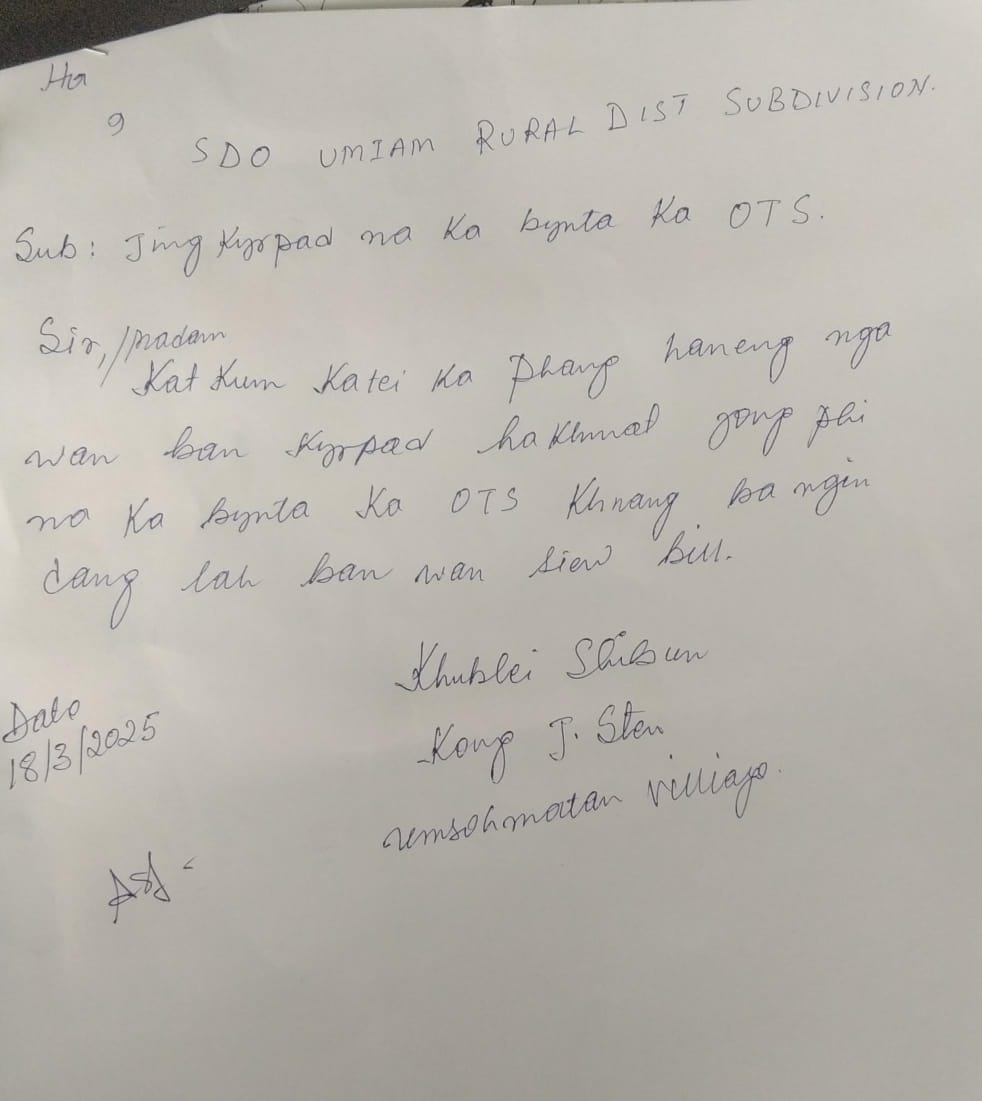 Ha
9
SDO UMIAM RURAL DIST SUBDIVISION.
Sub: Jingkyrpad na ka bynta ka OTS.
Sir,/madam
Kat kum katei ka phang haneng nga
wan ban kyrpad ha khmat jong phi
na ka bynta ka OTS khnang ba ngin
dang lah ban wan siew bill.
Khublei Shibun
Kong J. Sten
umsohmatan village.
Date
18/3/2025